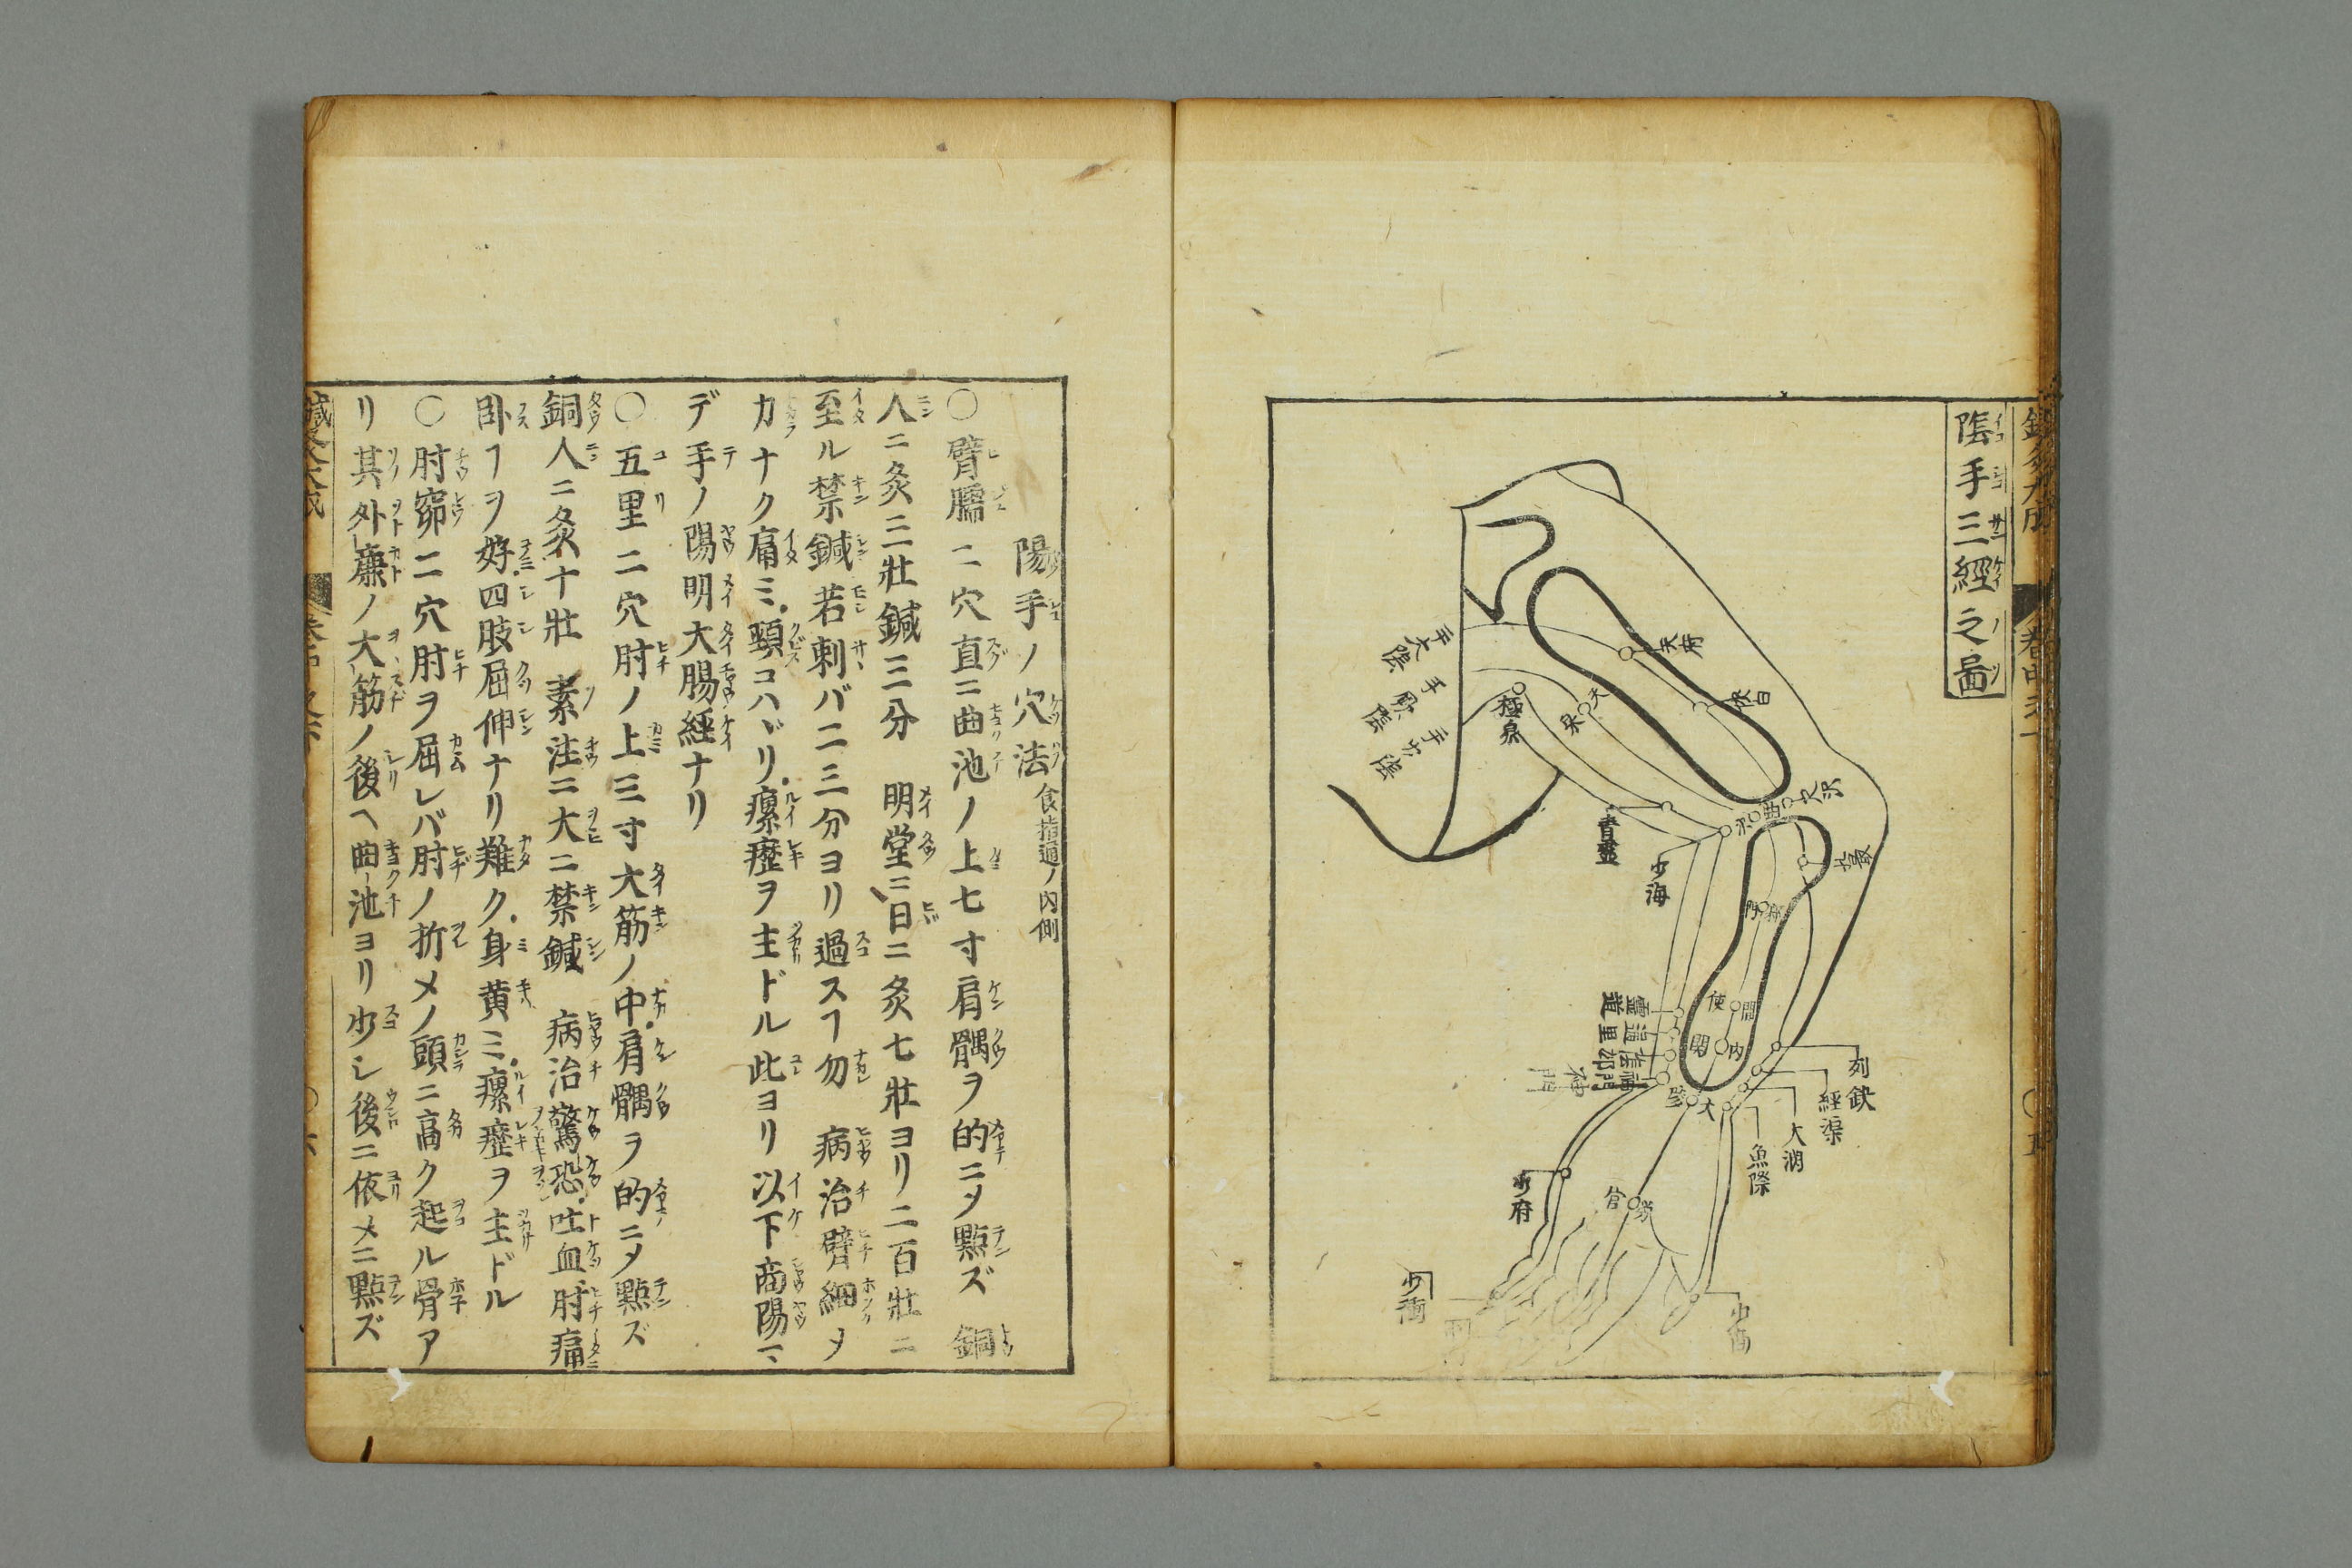 陰手三經之圖
手太陰
手厥陰
手少陰
天府
侠白
天泉
極泉
尺沢
曲沢
青靈
少海
孔最
郄門
間使
内関
靈道
通里
陰郄
神門
列缺
經渠
大渕
魚際
大陵
少府
労宮
少衝
少商
陽手ノ穴法 食指通ノ内側
〇臂臑二穴直ニ曲池ノ上七寸肩髃ヲ的ニメ點ズ 銅
人ニ灸三壯鍼三分 明堂ニ日ニ灸七壯ヨリ二百壯ニ
至ル禁鍼若刺バ二三分ヨリ過スヿ勿 病治臂細メ
カナク痛ミ頸コハヾリ瘰癧ヲ主ドル此ヨリ以下商陽マ
デ手ノ陽明大腸經ナリ
〇五里二穴肘ノ上三寸大筋ノ中肩髃ヲ的ニメ點ズ
銅人ニ灸十壯 素注ニ大ニ禁鍼 病治驚恐吐血肘痛
卧ヿヲ好四肢屈伸ナリ難ク身黄ミ瘰癧ヲ主ドル
〇肘窌二穴肘ヲ屈レバ肘ノ折メノ頭ニ高ク起ル骨ア
リ其外廉ノ大筋ノ後ヘ曲池ヨリ少シ後ニ依メニ點ズ